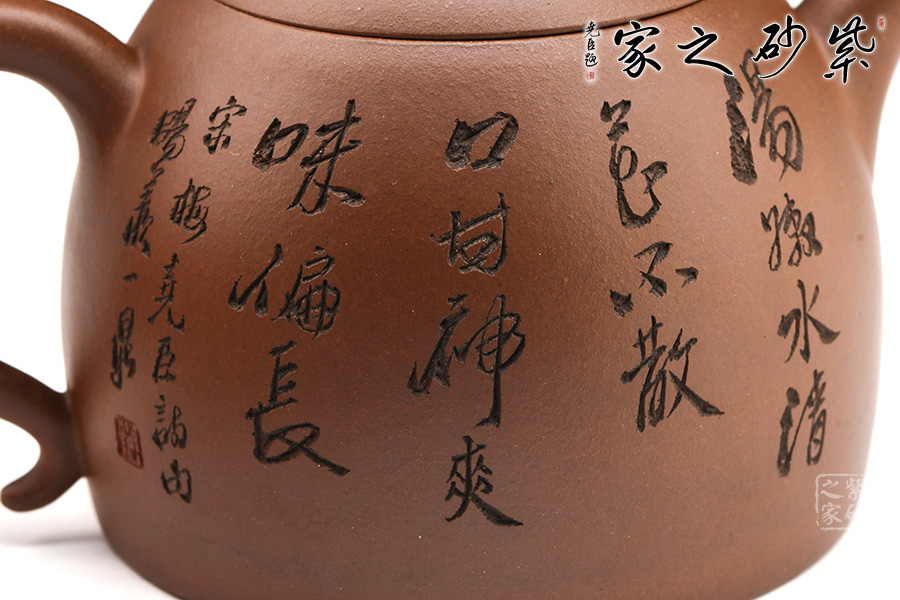 紫砂之家
堯臣題
湯嫩水清
花不散
口甘神爽
味偏長
宋梅堯臣詩句
陽羨一鼎
紫砂之家